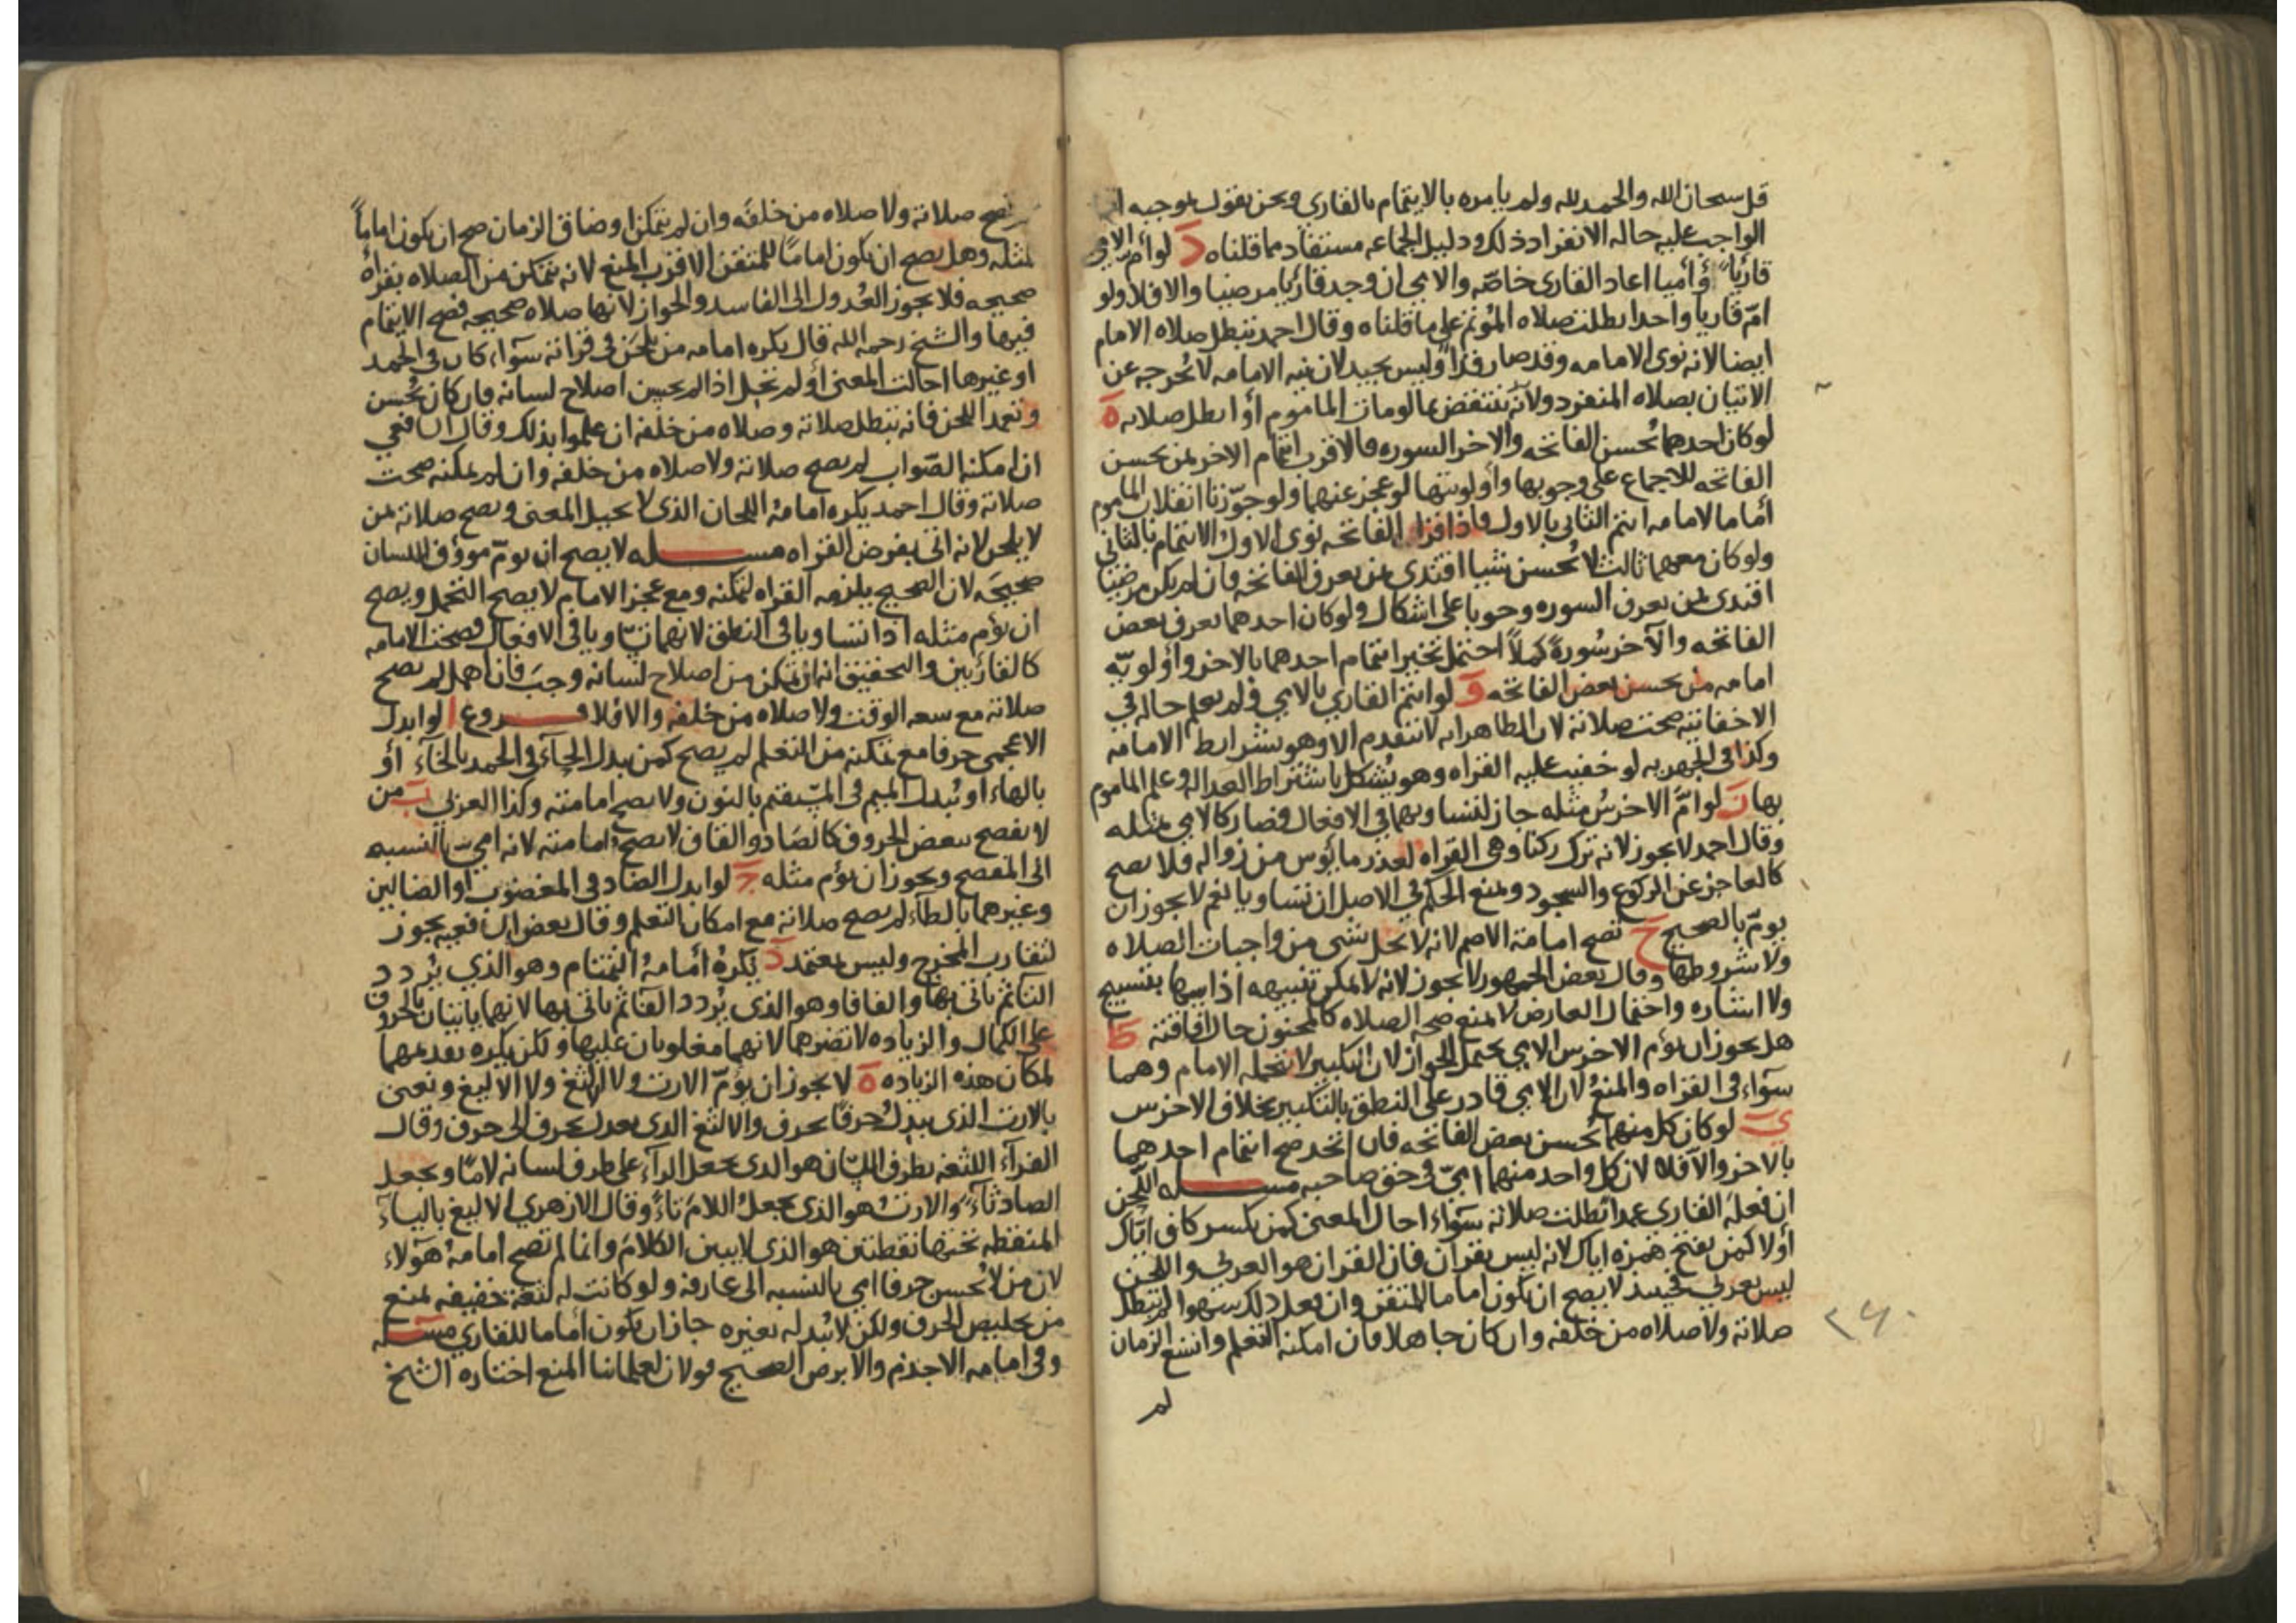 قل سبحان الله والحمد لله ولم يامره بالايتمام بالقاري ونحن نقول بموجبه
الواجب عليه حاله الانفراد ذلك ودليل الجماعه مستفاد مما قلناه د لو أم الامي
قارئًا وأميا اعاد القارى خاصّه والامي ان وجد قاريا مرضيا والا فلا ولو
امّ قاريا واحدا بطلت صلاه المؤتم على ما قلناه وقال احمد تبطل صلاه الامام
ايضا لانه نوى الامامه وقد صار فذًا وليس بجيد لان نيه الامامه لا تخرجه عن
الاتيان بصلاه المنفرد ولأنه ينتقض بما لو مات الماموم أو ابطل صلاته ه
لو كان احدهما يُحسن الفاتحه والاخر السوره فالاقرب ايتمام الاخر بمن يحسن
الفاتحه للاجماع على وجوبها وأولويتها لو عجز عنهما ولو جوّزنا انقلاب الماموم
اماما لامامه ائتم الثاني بالاول فاذا قرا الفاتحه نوى الاول الايتمام بالثاني
ولو كان معهما ثالث لا يُحسن شيا اقتدى بمن يعرف الفاتحه فان لم يكن مرضيا
اقتدى بمن يعرف السوره وجوبا على اشكال ولو كان احدهما يعرف بعض
الفاتحه والآخر سُورةً كملاً احتمل تخير ايتمام احدهما بالاخر واولويّه
امامه من يحسن بعض الفاتحه و لو ائتم القاري بالامي ولم يعلم حاله في
الاخفاتيه صحت صلاته لان الظاهر انه لا يتقدم الا وهو بشرايط الامامه
وكذا في الجهريه لو خفيت عليه القراه وهو يُشكل باشتراط العداله وعلم الماموم
بها ز لو امّ الاخرسُ مثله جاز لتساويهما في الافعال فصار كالامي بمثله
وقال احمد لا يجوز لانه ترك ركنا وهى القراه لعذر مايوس من زواله فلا يصح
كالعاجز عن الركوع والسجود ونمنع الحكم في الاصل ان تساويا نعم لا يجوز ان
يومّ بالصحيح ح تصح امامة الاصم لانه لا يخل بشي من واجبات الصلاه
ولا شروطها وقال بعض الجمهور لا يجوز لانه لا يمكن تنبيهه اذا سها بتسبيح
ولا اشاره واحتمال العارض لا يمنع صحه الصلاه كالمجنون حال افاقته ط
هل يجوز ان يؤم الاخرس الامي يحتمل الجواز لان التكبير لا يتحمله الامام وهما
سوآء في القراه والمنع لان الامي قادر على النطق بالتكبير بخلاف الاخرس
ي لو كان كل منهما يُحسن بعض الفاتحه فان اتحد صح ايتمام احدهما
بالاخر والا فلا لان كل واحد منهما اميّ في حق صاحبه مسله اللّحن
ان فعله القاري عمدا بطلت صلاته سوآء احال المعنى كمن يكسر كاف ايّاك
أولا كمن يفتح همزه اياك لانه ليس بقران فان القران هو العربي واللحن
ليس بعربي فحينيذ لا يصح ان يكون اماما للمتقن وان فعل ذلك سهوا لم تبطل
صلاته ولا صلاه من خلفه وان كان جاهلا فان امكنه التعلم واتسع الزمان
لم
٢٤٠
تصح صلاته ولا صلاه من خلفه وان لم يتمكن او ضاق الزمان صح ان يكون اماماً
لمثله وهل يصح ان يكون اماما للمتقن الاقرب المنع لانه يتمكن من الصلاه بقراه
صحيحه فلا يجوز العُدول الى الفاسد والجواز لانها صلاه صحيحه فصح الايتمام
فيها والشيخ رحمه الله قال يكره امامه من يلحن في قراته سوآء كان في الحمد
او غيرها احالت المعنى أو لم تحِل اذا لم يحسن اصلاح لسانه فان كان يُحسن
وتعمد اللحن فانه تبطل صلاته وصلاه من خلفه ان علموا بذلك وقال الشافعي
ان امكنه الصّواب لم يصح صلاته ولا صلاه من خلفه وان لم يمكنه صحت
صلاته وقال احمد يكره امامة اللحان الذى لا يحيل المعنى ويصح صلاته بمن
لا يلحن لانه اتى بفرض القراه مسله لا يصح ان يومّ مووف اللسان
صحيحَه لان الصحيح يلزمه القراه لتمكنه ومع عجز الامام لا يصح التحمل ويصح
ان يؤم مثله اذا تساويا في النطق لانهما تساويا في الافعال فصحت الامامه
كالقارئين والتحقيق انه ان تمكن من اصلاح لسانه وجب فان اهمل لم تصح
صلاته مع سعه الوقت ولا صلاه من خلفه والا فلا فروع ا لو ابدل
الاعجمى حرفا مع تمكنه من التعلم لم يصح كمن يبدل الحآء في الحمد بالخآء أو
بالهاء او يُبدل الميم في المستقيم بالنون ولا يصح امامته وكذا العربي ب من
لا يفصح ببعض الحروف كالصاد والقاف لا يصح امامته لانه اميّ بالنسبه
الى المفصح ويجوز ان يؤم مثله ج لو ابدل الضاد في المغضوب او الضالين
وغيرهما بالظآء لم يصح صلاته مع امكان التعلم وقال بعض الشافعيه يجوز
لتقارب المخرج وليس بمعتمد د تكره أمامة التمتام وهو الذي يُردد
التا ثم ياتي بها والفافا وهو الذي يُردد الفا ثم ياتي بها لانهما ياتيان بالحروف
على الكمال والزياده لا تضرهما لانهما مغلوبان عليها ولكن يكره تقديمهما
لمكان هذه الزياده ه لا يجوز ان يؤمّ الارت ولا الالثغ ولا الاليغ ونعني
بالارت الذى يبدل حرفا بحرف والالثغ الذي يعدل بحرف الى حرف وقال
الفرآء اللثغه بطرف اللسان هو الذى يجعل الرآء على طرف لسانه لامًا ويجعل
الصاد ثآءً والارتُ هو الذى يجعلُ اللامَ تاءً وقال الازهري الاليغ باليآء
المنقطه تحتها نقطتين هو الذى لا يبين الكلام وانما لم تصح امامة هولاء
لان من لا يُحسن حرفا امي بالنسبه الى عارفه ولو كانت له لثغة خفيفه تمنع
من تخليص الحرف ولكن لا يُبدله بغيره جاز ان يكون أماما للقاري مسله
وفي امامه الاجذم والابرص الصحيح قولان لعلمائنا المنع اختاره الشيخ